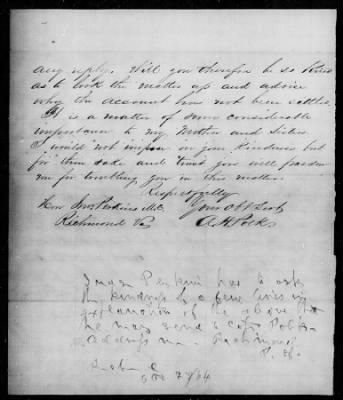 any reply. Will you therefore be so kind
as to look the matter up and advise
why the account has not been settled.
It is a matter of some considerable
importance to my Mother and Sister
I would not impose on your kindness but
for their sake and trust you will pardon
me for troubling you in this matter.
Respectfully
Hon Jno Perkins M.C. Your Obt Servt
Richmond Va A. H. Polk
Perkins has to ask
the kindness of a few lines in
explanation of the above that
he may send a Polk
Address me Richmond
P. O.
64